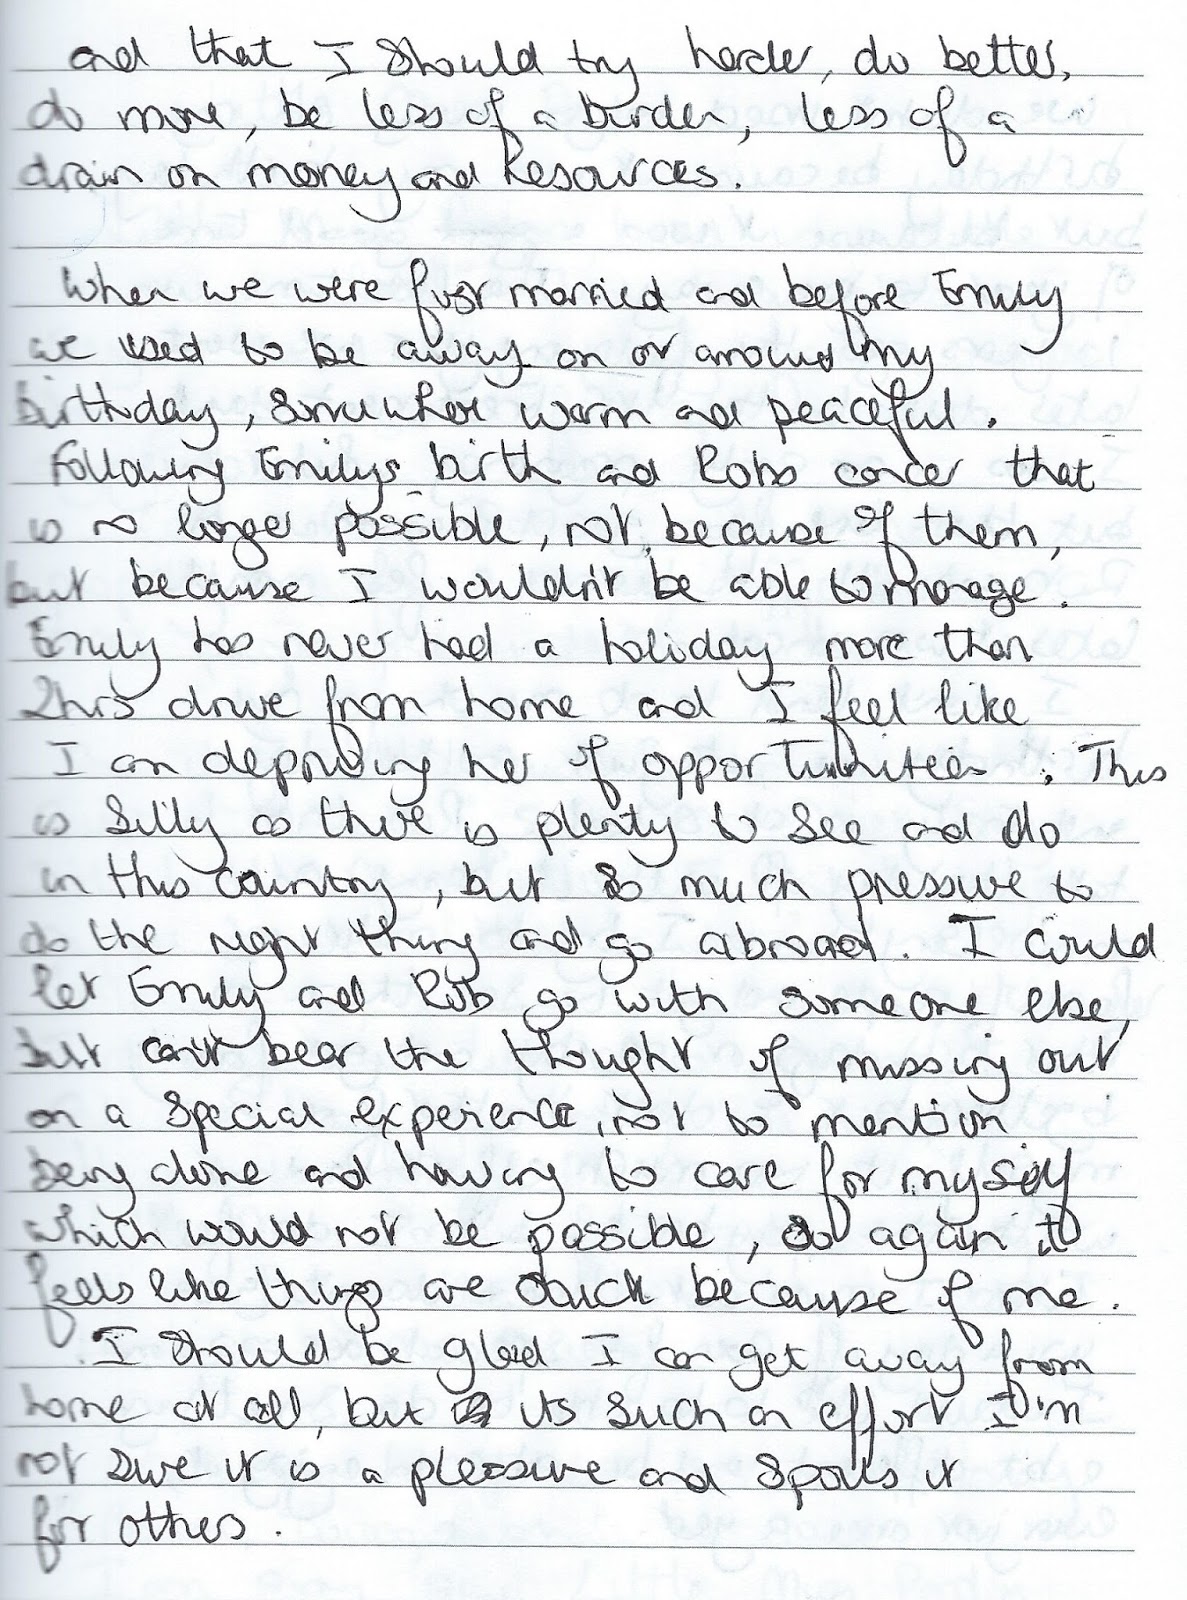 and that I should try harder, do better,
do more, be less of a burden, less of a
drain on money and resources.
When we were first married and before Emily
we used to be away on or around my
birthday, somewhere warm and peaceful.
Following Emilys birth and Robs cancer that
is no longer possible, not because of them,
but because I wouldn't be able to manage.
Emily has never had a holiday more than
2hrs drive from home and I feel like
I am depriving her of opportunities. This
is silly as there is plenty to see and do
in this country, but so much pressure to
do the right thing and go abroad. I could
let Emily and Rob go with someone else,
but can't bear the thought of missing out
on a special experience, not to mention
being alone and having to care for myself
which would not be possible, so again it
feels like things are stuck because of me.
I should be glad I can get away from
home at all, but its such an effort I'm
not sure it is a pleasure and spoils it
for others.